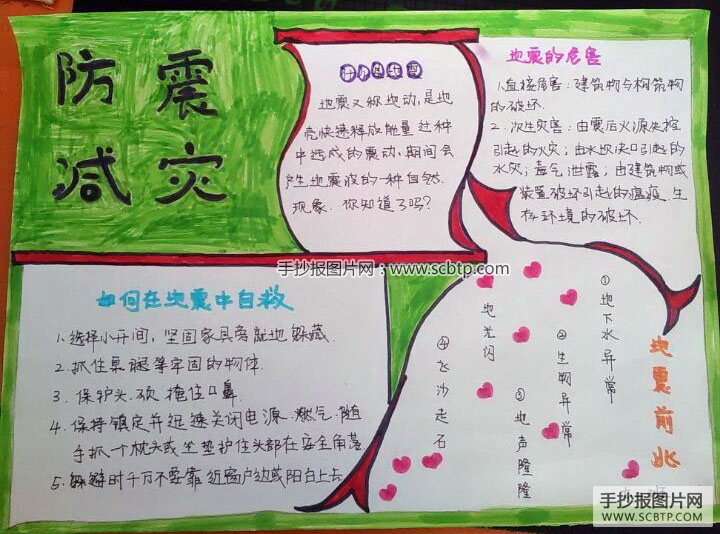 防震
减灾
地震又称地动,是地
壳快速释放能量过种
中造成的震动,期间会
产生地震波的一种自然
现象.你知道了吗?
地震的危害
1.直接危害:建筑物与构筑物
的破坏.
2.次生灾害:由震后火源失控
引起的火灾;由水坝决口引起的
水灾;毒气泄露;由建筑物或
装置破坏引起的瘟疫.生
存环境的破坏.
手抄报图片网:www.scbtp.com
如何在地震中自救
1.选择小开间,坚固家具旁就地躲藏.
2.抓住桌腿等牢固的物体.
3.保护头.颈,掩住口鼻.
4.保持镇定并迅速关闭电源.燃气.随
手抓一个枕头或坐垫护住头部在安全角落
5.躲避时千万不要靠近窗户边或阳台上去
地震前兆
①地下水异常
②生物异常
③地声隆隆
地光闪
④飞沙走石
手抄报图片网
WWW.SCBTP.COM